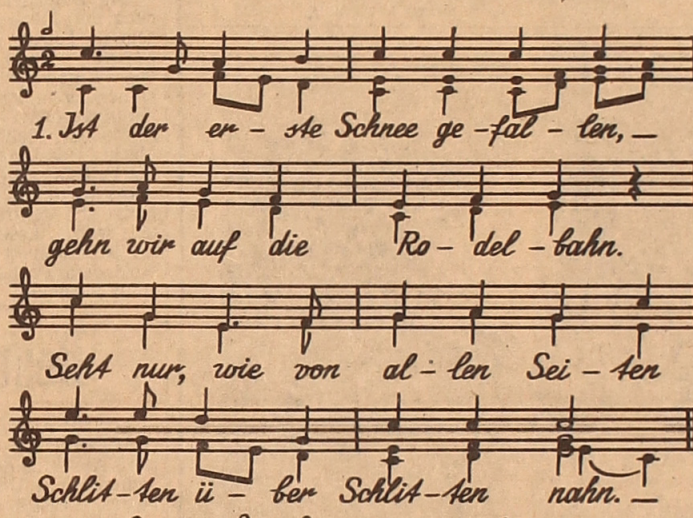 1. Ist der er - ste Schnee ge - fal - len, _
gehn wir auf die Ro - del - bahn.
Seht nur, wie von al - len Sei - ten
Schlit - ten ü - ber Schlit - ten nahn. _